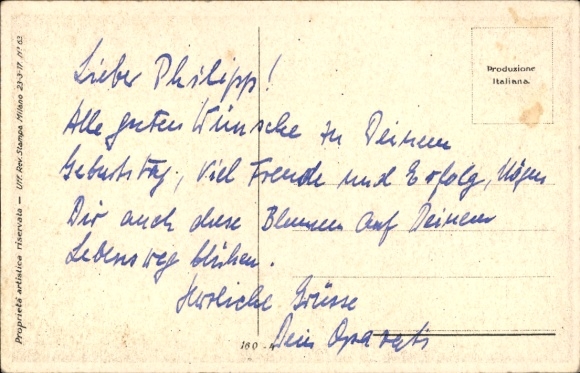 Lieber Philipp!
Alle guten Wünsche zu Deinem
Geburtstag, viel Freude und Erfolg, Mögen
Dir auch diese Blumen auf Deinem
Lebensweg blühen.
Herzliche Grüsse
Dein
Produzione
Italiana.
Proprietà artistica riservata — Uff. Rev. Stampa Milano 23-3-17 N° 63
160